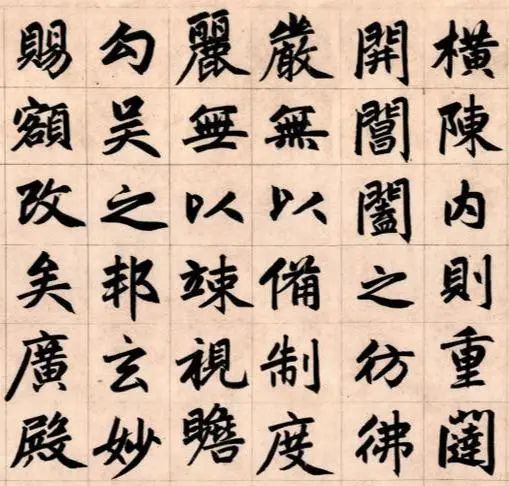 橫陳内則重闥
開閶闔之彷彿
嚴無以備制度
麗無以竦視瞻
勾吳之邦玄妙
賜額改矣廣殿